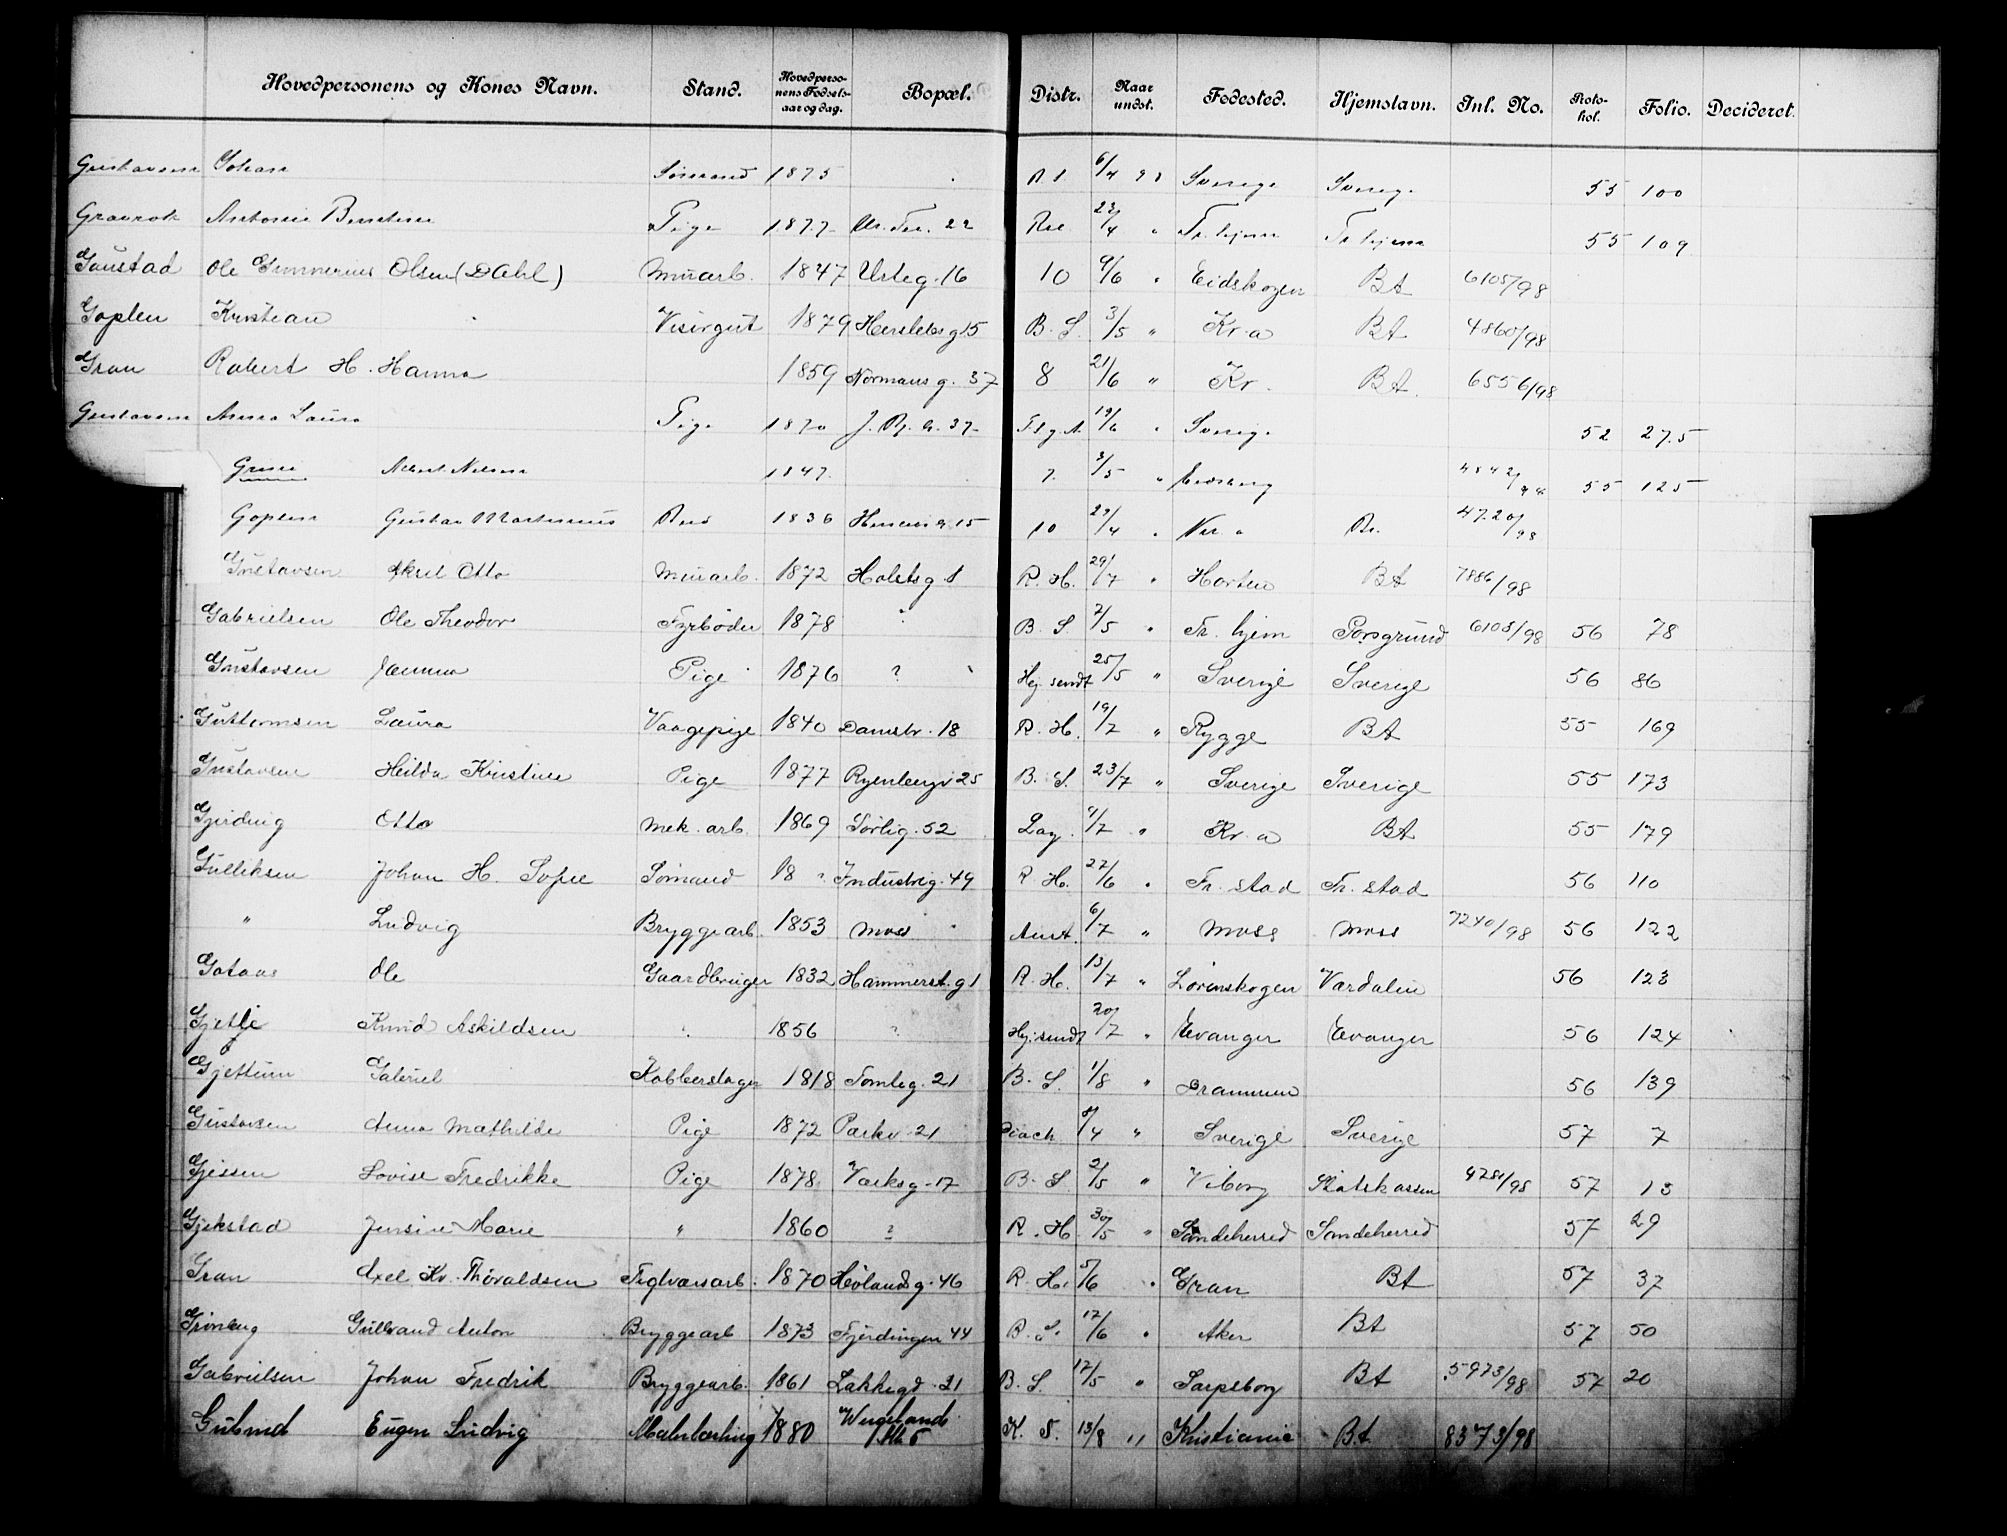 Hovedpersonens og Kones Navn. Stand. Hovedpersonens Fødselsaar og dag. Bopæl. Distr. Naar undst. Fødested. Hjemstavn. Inl. No. Protokol. Folio. Decideret.
Gustavsen Johan Sømand 1875 6/4 98 Sverige Sverige 55 100
Gravrok Antonie Pige 1877 22 22/4 " Tr.hjem Tr hjem 55 109
Gaustad Ole Gunnerius Olsen (Dahl) Murarb. 1847 Urteg. 16 10 9/6 " Eidskogen BA 6105/98
Goplen Kristian Visergut 1879 Herslebsg 15 B. S. 3/5 " Kr.a BA 4860/98
Gran Robert H. Hanna 1859 Normansg. 37 8 21/6 " Kr. BA 6556/98
Gustavsen Anna Laura Pige 1870 37 19/6 " Sverige 52 275
Albert Nilsen 1847 7. 3/5 " 55 125
Goplen Gustav Martinius 1836 15 10 29/4 " Kr. a 4720/98
Gustavsen Aksel Otto Murarb. 1872 Holstsg 1 R. H. 29/7 " Horten BA 7886/98
Gabrielsen Ole Theodor Fyrbøder 1878 ? B. S. 7/5 " Fr. hjem Porsgrund 6103/98 56 78
Gustavsen Pige 1876 ? Hj. sendt 25/5 " Sverige Sverige 56 86
Guttormsen Laura Vaagepige 1840 Damstr. 18 R. H. 19/7 " Rygge BA 55 169
Gustavsen Hilda Kristine Pige 1877 Ryenbergv 25 B. S. 23/7 " Sverige Sverige 55 173
Gjerding Otto Mek. arb. 1869 Sørlig. 52 Lag. 9/7 " Kr. a BA 55 179
Gulliksen Johan H. Sofie Sømand 18 " Industrig. 49 R. H. 27/6 " Fr. stad Fr. stad 56 110
" Ludvig Bryggearb. 1853 Moss " Anst. 6/7 " Moss Moss 7240/98 56 122
Gotaas Ole Gaardbruger 1832 Hammerst.g 1 R. H. 13/7 " Lørenskogen Værdalen 56 123
Gjetle Knud Askildsen 1856 ? Hj. sendt 20/7 " Evanger Evanger 56 124
Gjettum Gabriel Kobberslager 1818 Tomteg. 21 B. S. 1/8 " Drammen 56 139
Gustavsen Anna Mathilde Pige 1872 Parkv. 21 8/4 " Sverige Sverige 57 7
Gjessen Lovise Fredrikke Pige 1878 Værksg. 17 B. S. 2/5 " Viborg Statskassen 4281/98 57 13
Gjekstad Jensine Marie " 1860 ? R. H. 30/5 " Sandeherred Sandeherred 57 29
Gran Axel Kr. Thorvaldsen Teglværsarb. 1870 Heslandsg. 46 R. H. 5/6 " Gran BA 57 37
Grønberg Gulbrand Anton Bryggearb 1873 Fjerdingen 44 17/6 " Aker BA 57 50
Gabrielsen Johan Fredrik Bryggearb. 1861 Lakkegd. 21 B. S. 17/5 " Sarpsborg BA 5973/98 57 20
Eugen Ludvig Malerlærling 1880 K. S. 13/8 " Kristiania BA 8373/98